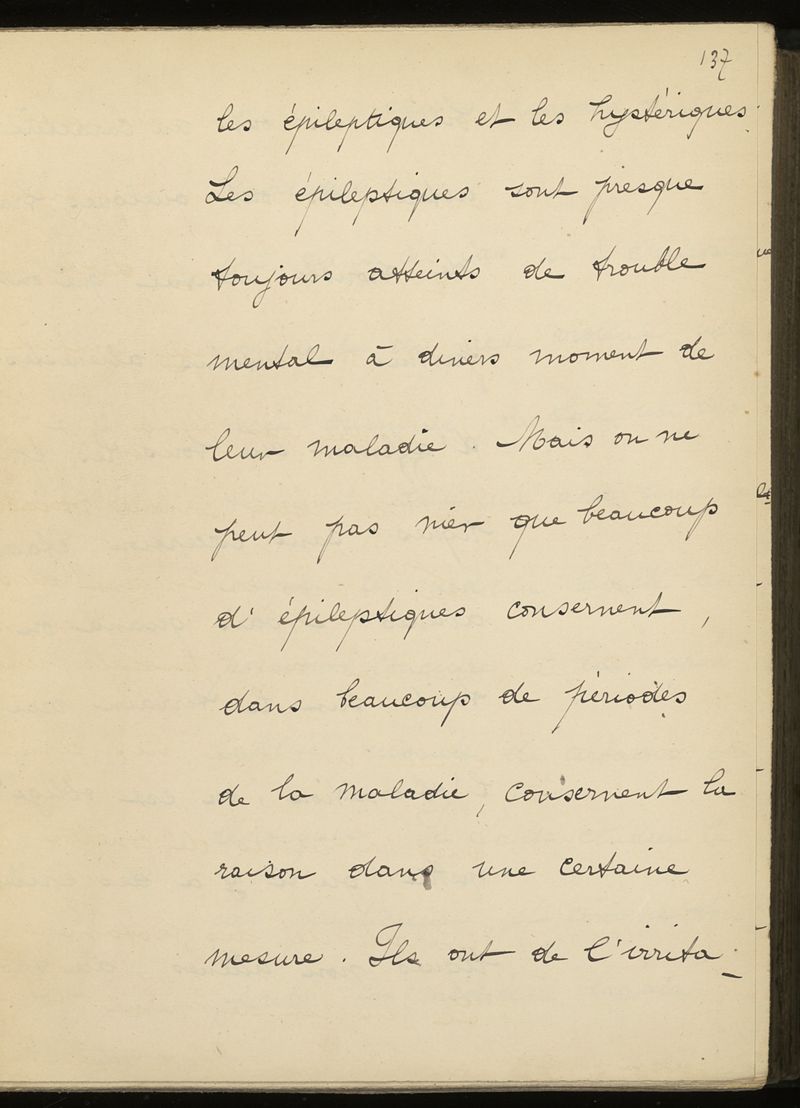 137
les épileptiques et les hystériques.
Les épileptiques sont presque
toujours atteints de trouble
mental à divers moment de
leur maladie. Mais on ne
peut pas nier que beaucoup
d'épileptiques conservent,
dans beaucoup de périodes
de la maladie, conservent la
raison dans une certaine
mesure. Ils ont de l'irrita-